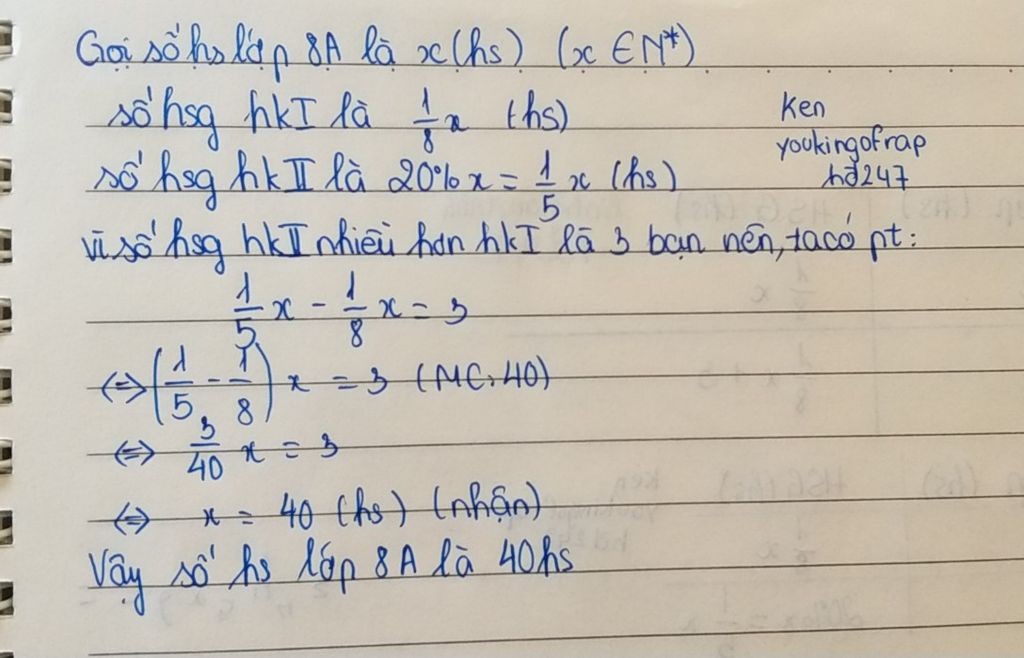 Gọi số hs lớp 8A là x (hs) (x ∈ N*)
số hsg hkI là 1/8 x (hs)
Ken
youkingofrap
hd247
số hsg hkII là 20% x = 1/5 x (hs)
Vì số hsg hkII nhiều hơn hkI là 3 bạn nên, ta có pt:
1/5 x - 1/8 x = 3
<=> (1/5 - 1/8) x = 3 (MC: 40)
<=> 3/40 x = 3
<=> x = 40 (hs) (nhận)
Vậy số hs lớp 8A là 40hs